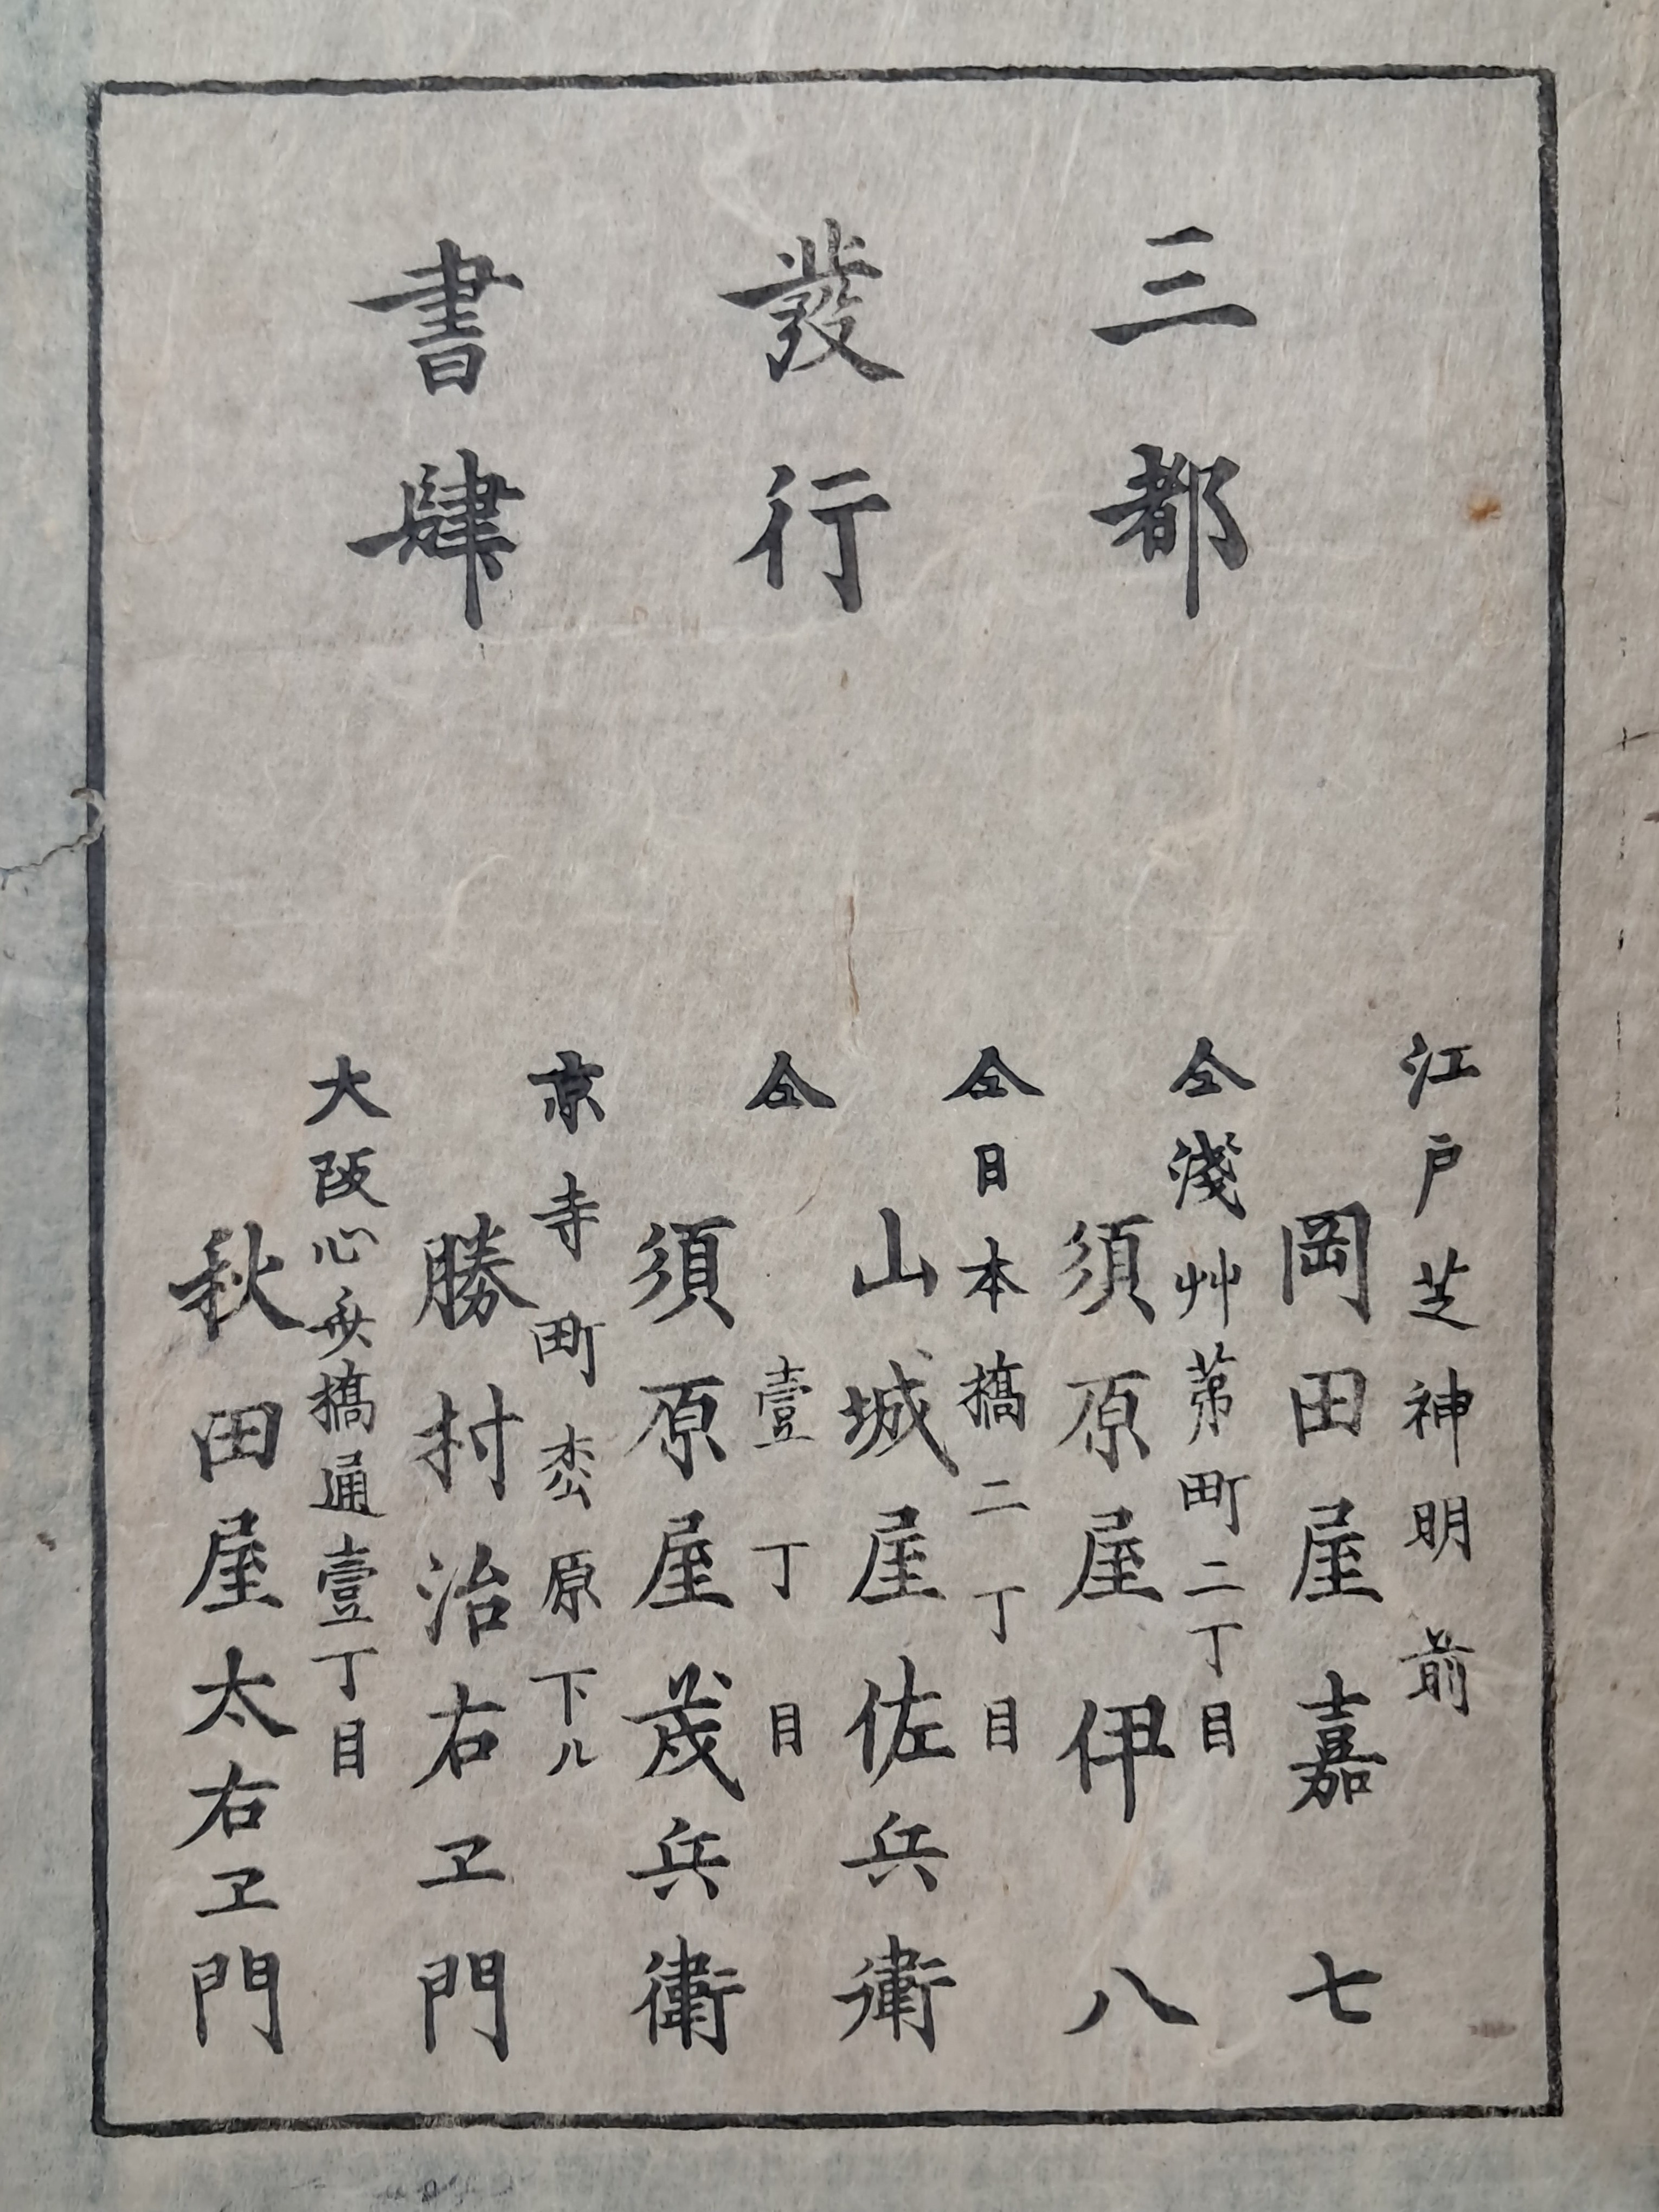 三都
發行
書肆
江戸芝神明前
岡田屋嘉七
仝淺艸茅町二丁目
須原屋伊八
仝日本橋二丁目
山城屋佐兵衛
仝壹丁目
須原屋茂兵衛
京寺町枩原下ル
勝村治右ヱ門
大阪心斎橋通壹丁目
秋田屋太右ヱ門